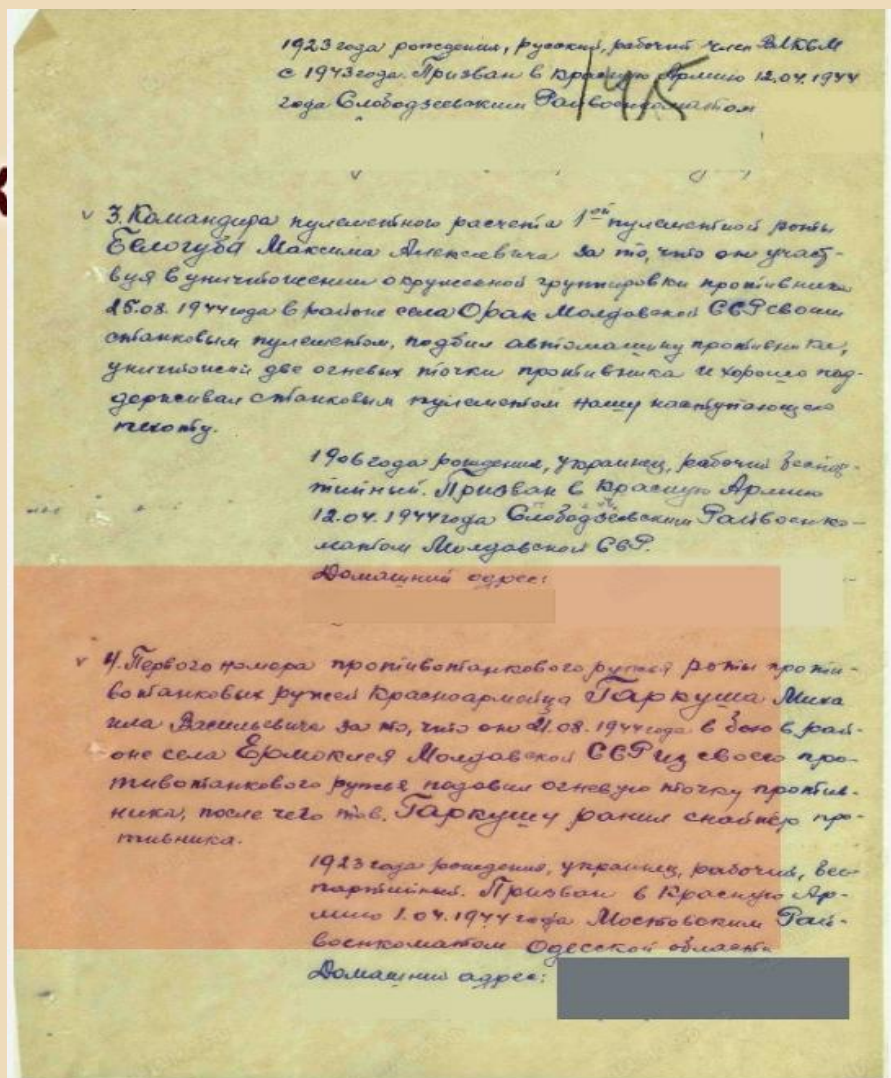 1923 года рождения, русский, рабочий член ВЛКСМ
с 1943 года. Призван в Красную Армию 12.04.1944
года Слободзеевским Райвоенкоматом
√ 3. Командира пулеметного расчета 1ой пулеметной роты
Белогуба Максима Алексевича за то, что он участ-
вуя в уничтожении окруженной группировки противника
25.08.1944 года в районе села Орак Молдавской ССР своим
станковым пулеметом, подбил автомашину противника,
уничтожил две огневых точки противника и хорошо под-
держивал станковым пулеметом нашу наступающую
пехоту.
1906 года рождения, украинец, рабочий беспар-
тийный. Призван в Красную Армию
12.04.1944 года Слободзеевским Райвоенко-
матом Молдавской ССР.
Домашний адрес:
√ 4. Первого номера противотанкового ружья роты проти-
вотанковых ружей Красноармейца Гаркуша Миха
ила Васильевича за то, что он 21.08.1944 года в бою в рай-
оне села Ермоклея Молдавской ССР из своего про-
тивотанкового ружья подавил огневую точку против-
ника, после чего тов. Гаркушу ранил снайпер про-
тивника.
1923 года рождения, украинец, рабочий, бес-
партийный. Призван в Красную Ар-
мию 1.04.1944 года Мостовским Рай-
военкоматом Одесской области
Домашний адрес: